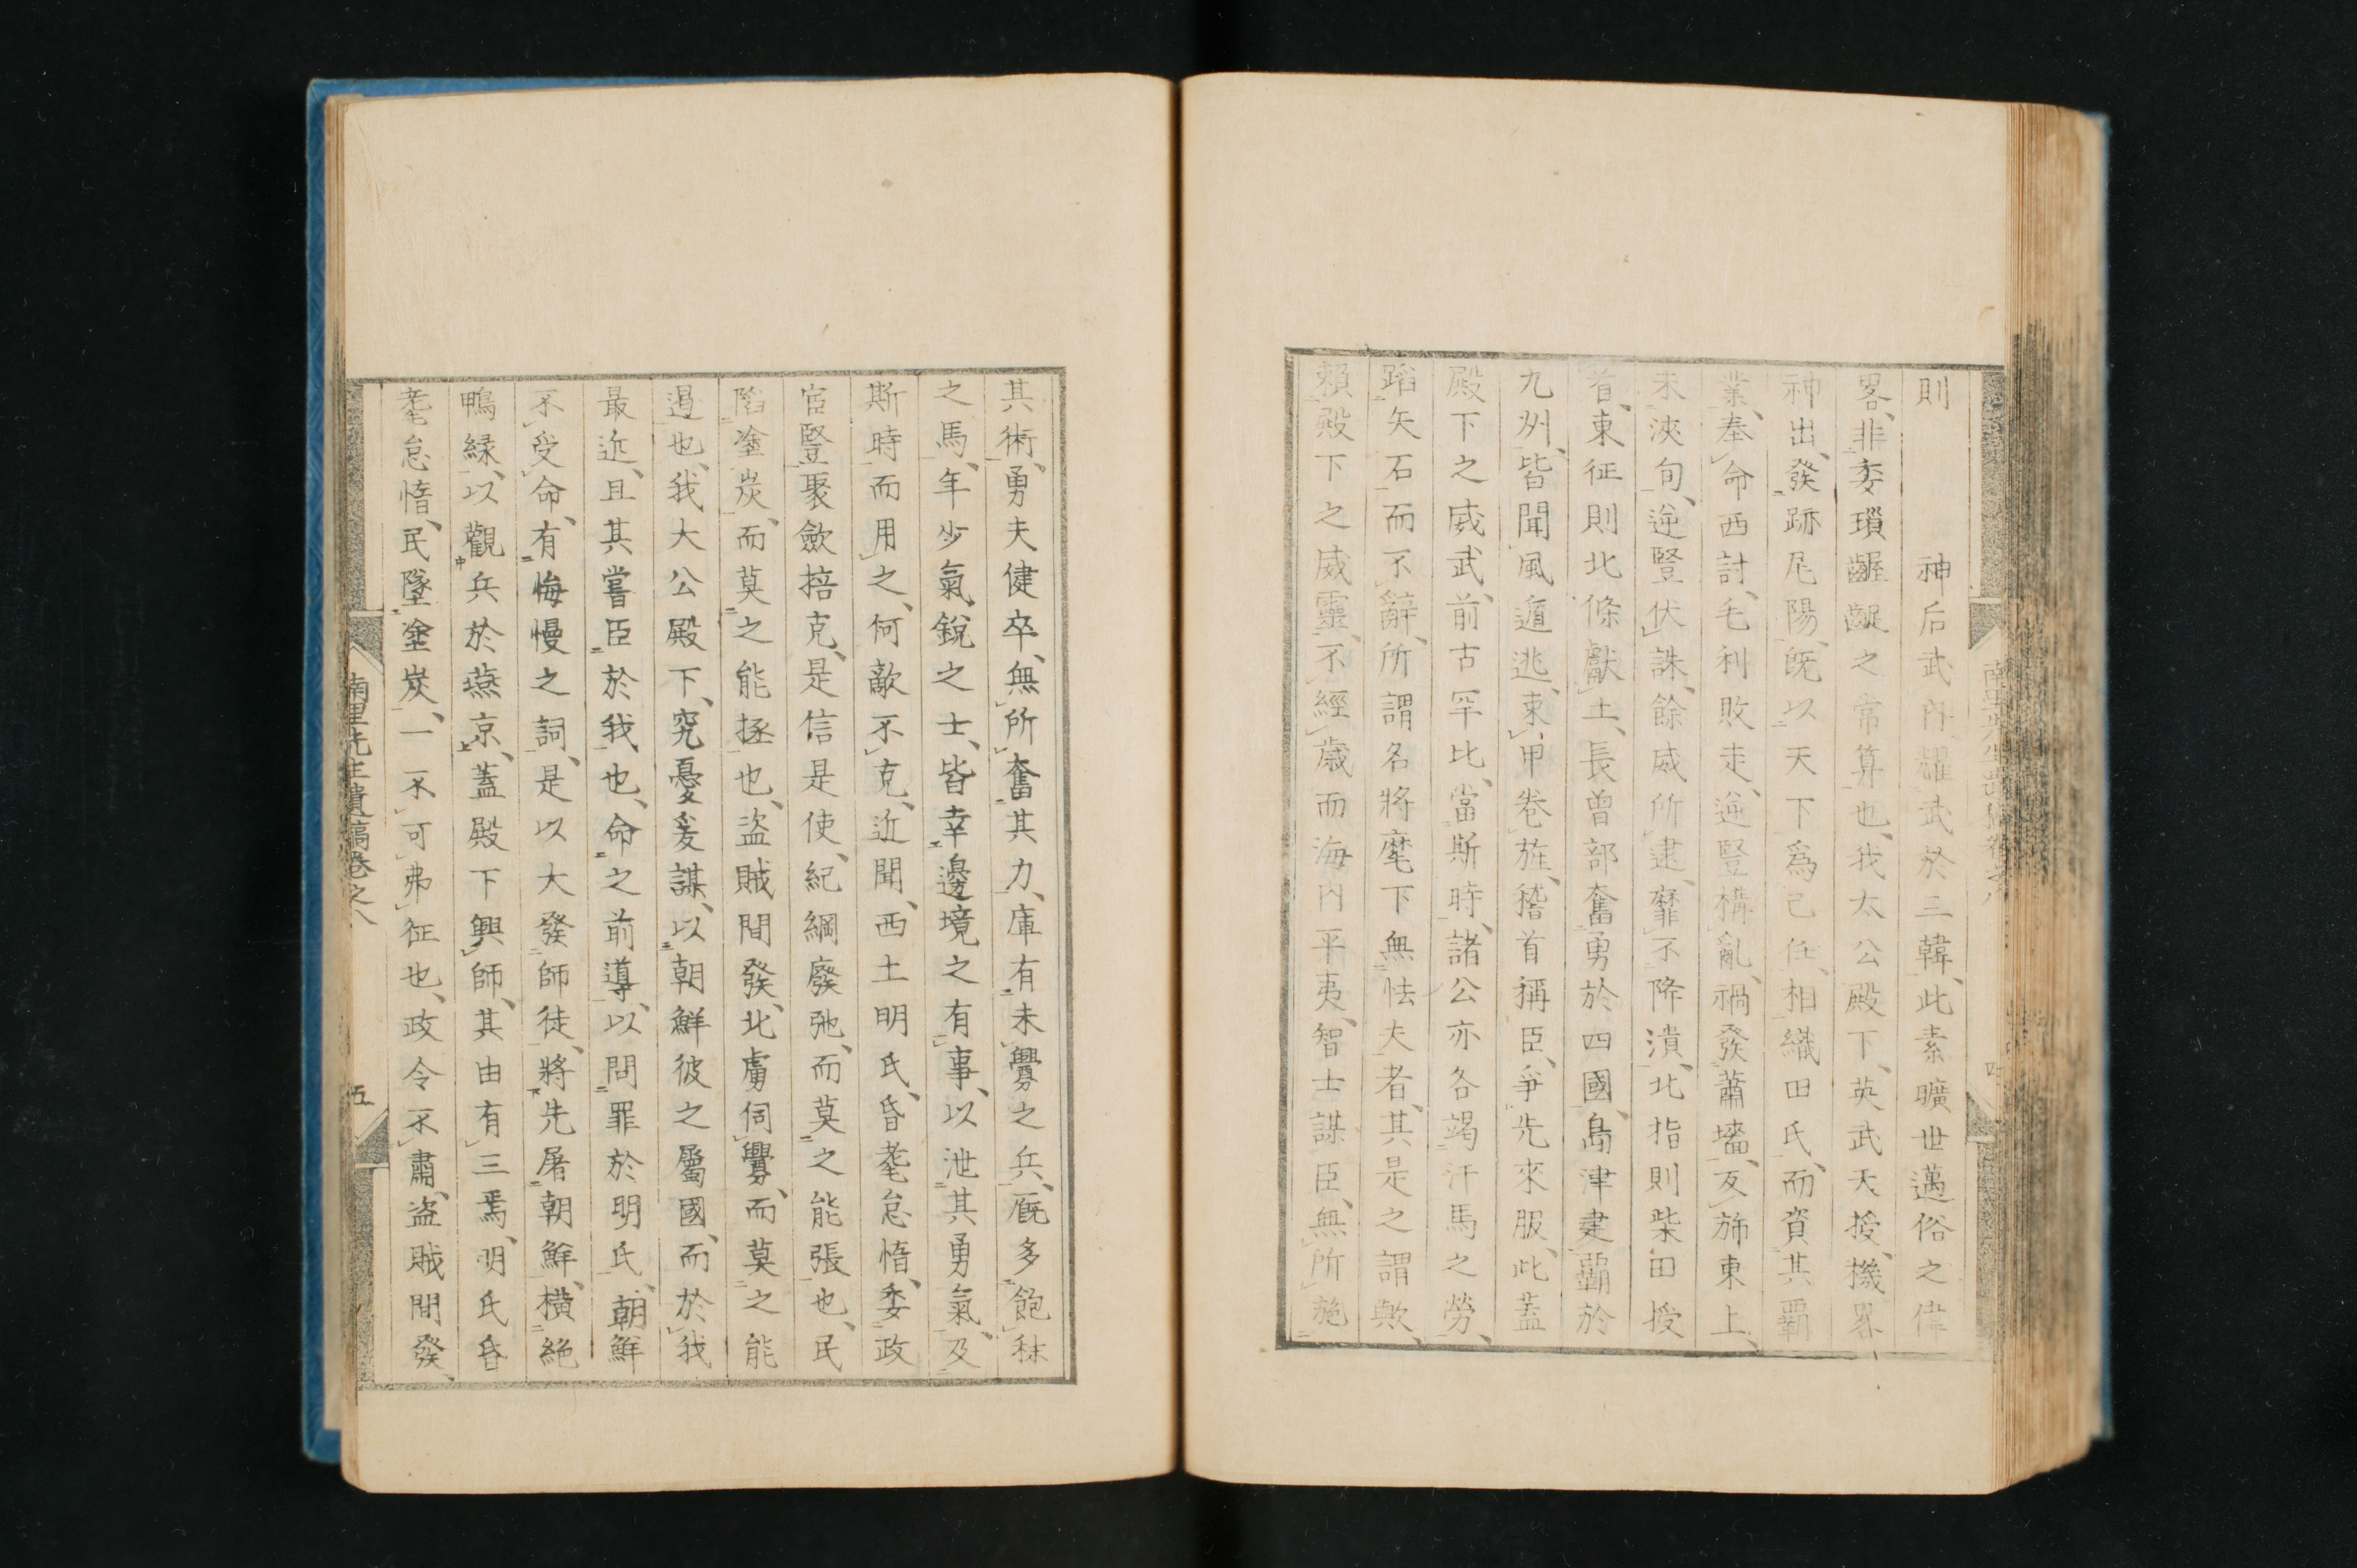 則　神后武內耀武於三韓、此素曠世邁俗之偉
畧、非委瑣齷齪之常算也、我太公殿下、英武天授、機畧
神出、發跡尾陽、既以天下爲己任、相織田氏、而資其覇
業、奉命西討、毛利敗走、逆豎構亂、禍發蕭墻、反旆東上、
未浹旬、逆豎伏誅、餘威所逮、靡不降潰、北指則柴田授
首、東征則北條獻土、長曾部奮勇於四國、島津建覇於
九州、皆聞風遁逃、束甲卷旌、稽首稱臣、爭先來服、此蓋
殿下之威武、前古罕比、當斯時、諸公亦各竭汗馬之勞、
蹈矢石而不辭、所謂名將麾下無怯夫者、其是之謂歟、
賴殿下之威靈、不經歲而海內平夷、智士謀臣、無所施
其術、勇夫健卒、無所奮其力、庫有未釁之兵、厩多飽秣
之馬、年少氣銳之士、皆幸邊境之有事、以泄其勇氣、及
斯時而用之、何敵不克、近聞、西土明氏、昏耄怠惰、委政
宦豎、聚斂掊克、是信是使、紀綱廢弛、而莫之能張也、民
陷塗炭、而莫之能拯也、盜賊間發、北虜伺釁、而莫之能
遏也、我大公殿下、究憂爰謀、以朝鮮彼之屬國、而於我
最近、且其嘗臣於我也、命之前導、以問罪於明氏、朝鮮
不受命、有悔慢之詞、是以大發師徒、將先屠朝鮮、橫絶
鴨緑、以觀兵於燕京、蓋殿下興師、其由有三焉、明氏昏
耄怠惰、民墜塗炭、一不可弗征也、政令不肅、盜賊間發、
南里先生遺稿卷之八
五